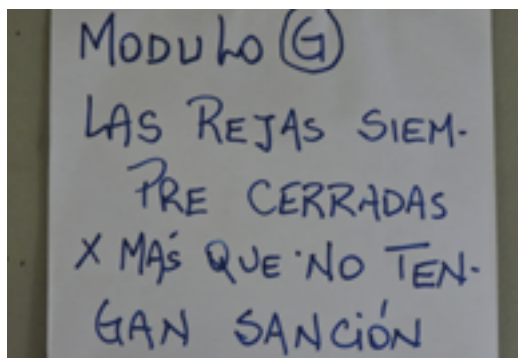 MODULO G
LAS REJAS SIEM-
PRE CERRADAS
X MÁS QUE NO TEN-
GAN SANCIÓN